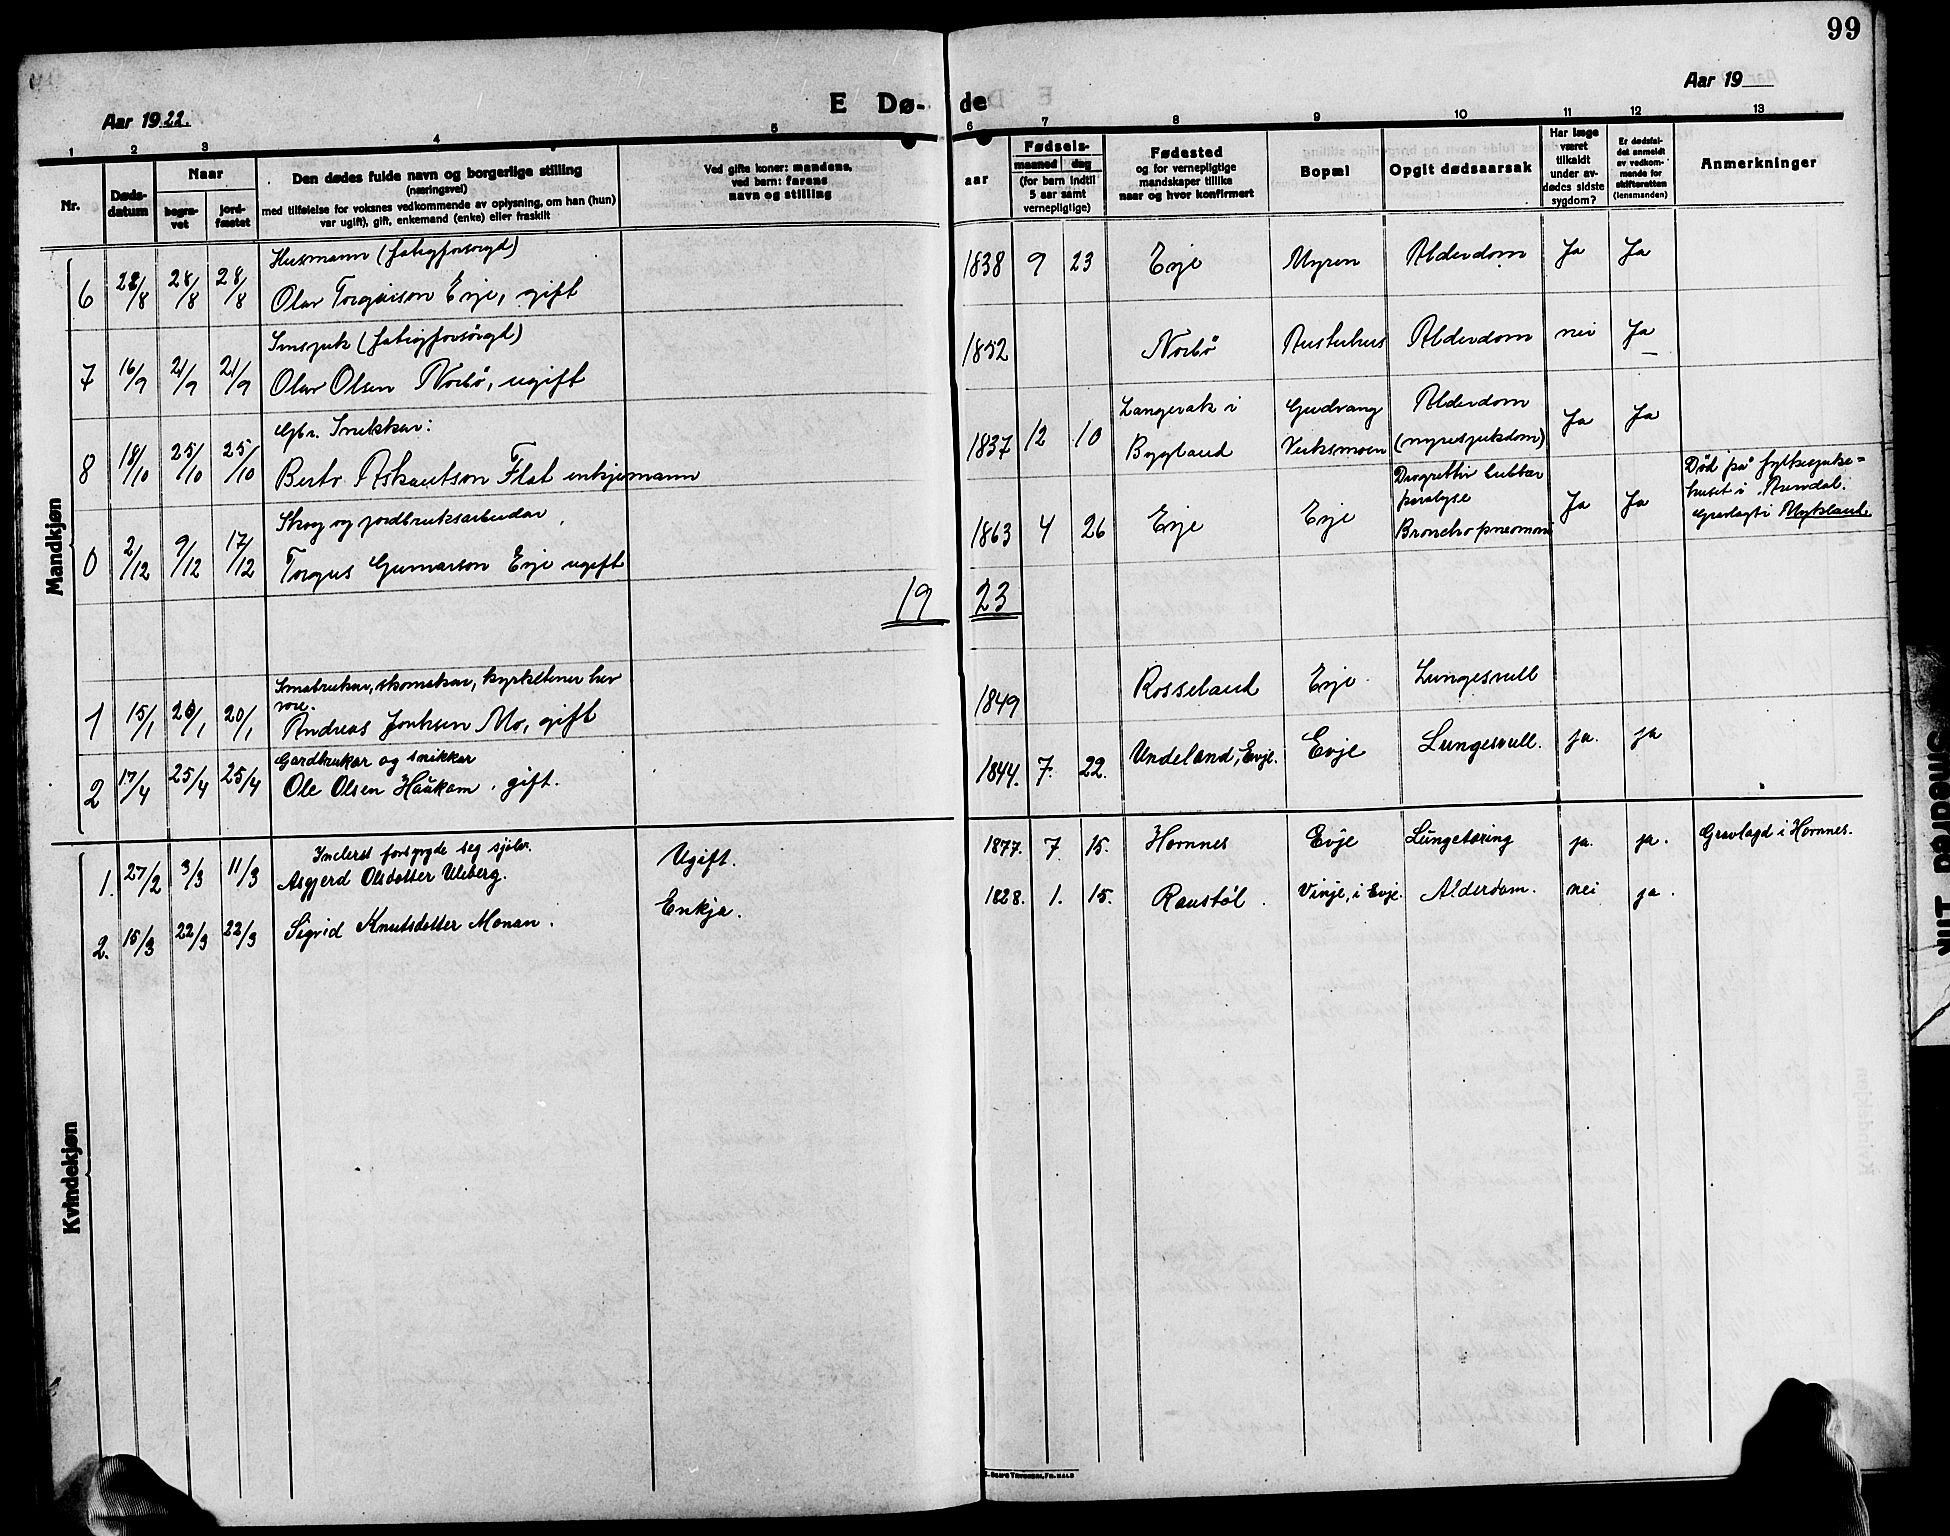 99
Aar 1922.
E Dø- de
Aar 19
1 2 3 4 5 6 7 8 9 10 11 12 13
Nr.
Døds-
datum
Naar
begra-
vet
jord-
fæstet
Den dødes fulde navn og borgerlige stilling
(næringsvei)
med tilføielse for voksnes vedkommende av oplysning, om han (hun)
var ugift), gift, enkemand (enke) eller fraskilt
Ved gifte koner: mandens,
ved barn: farens
navn og stilling
aar
Fødsels-
maaned dag
(for barn indtil
5 aar samt
vernepligtige)
Fødested
og for vernepligtige
mandskaper tillike
naar og hvor konfirmert
Bopæl
Opgit dødsaarsak
Har læge
været
tilkaldt
under av-
dødes sidste
sygdom?
Er dødsfal-
det anmeldt
av vedkom-
mende for
skifteretten
(lensmanden)
Anmerkninger
Mandkjøn
Husmann (fatigforsorgd)
6 28/8 28/8 28/8 Olav Torgeirson Evje, gift 1838 9 23 Evje Myren Alderdom Ja Ja
(fatigforsörgd)
7 16/9 21/9 21/9 Olav Olsen Norbø, ugift 1852 Norbø Austerhus Alderdom nei Ja
Gbr. Snikkar:
8 18/10 25/10 25/10 Flat enkjemann 1837 12 10 Langerak i Bygland Verksmoen Alderdom (nyresjukdom) Ja Ja
Skog og jordbruksarbeidar
0 2/12 9/12 17/12 Torgus Gunnarson Evje ugift 1863 4 26 Evje Evje
paralyse
Ja Ja
Død på fylkesjuke=
huset i Arendal.
Gravlagt i Mykland.
19 23
Smabrukar, skomakar, kyrkjetener her
1 15/1 20/1 20/1 Andreas Mo, gift 1849 Rosseland Evje Lungesvull
Gardbrukar og snikkar
2 17/4 25/4 25/4 Ole Olsen Haukom, gift. 1844. 7. 22. Undeland, Evje. Evje Lungesvull. ja. ja
Kvindekjøn
Inderst forsyrgde seg sjølv.
1. 27/2 3/3 11/3 Asgjerd Olsdotter Uleberg. Ugift. 1877. 7. 15. Hornnes Evje Lungetæring ja. ja. Gravlagd i Hornnes.
2. 15/3 22/3 22/3 Sigrid Knutsdotter Monan. Enkja. 1828. 1. 15. Raustøl. Vinje, i Evje. Alderdom. nei ja.